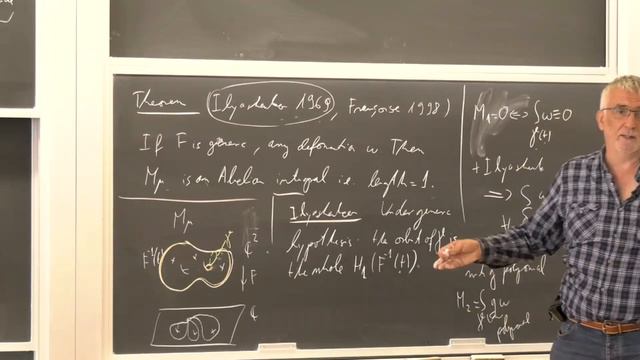 Theorem (Ilyashenko 1969, Françoise 1998)
If F is generic, any deformation ω Then
Mμ is an Abelian integral i.e. length = 1.
Mμ
F⁻¹(t)
ℂ²
↓ F
ℂ
Ilyashenko Under generic
hypothesis the orbit of γ is
the whole H₁(F⁻¹(t)).
M₁=0 ⟺ ∫ ω ≡ 0
γ(t)
+ Ilyashenko
⟹ ∫
polynomial
M₂ = ∫ gω
polynomial